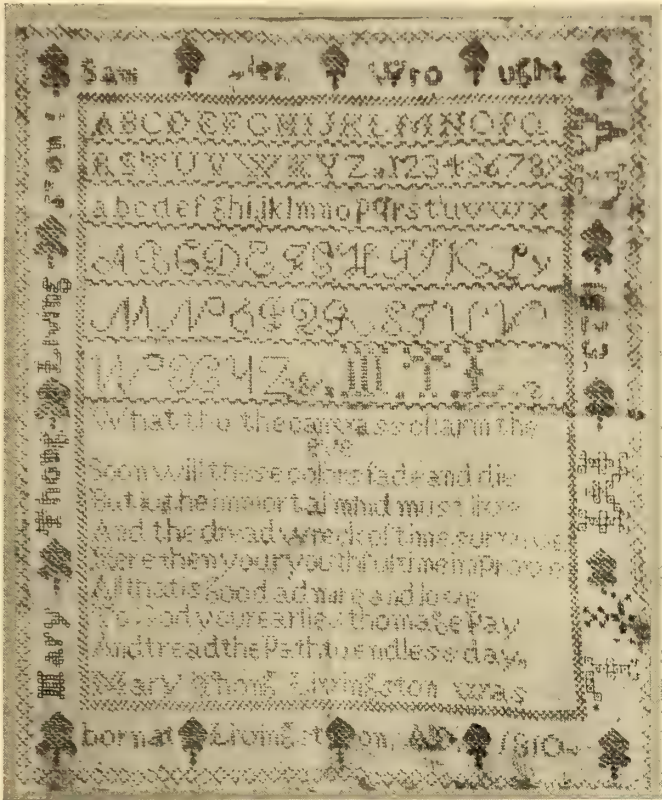 Sam pler Wro ught
ABCDEFGHIJKLMNOPQ
RSTUVWXYZ.,123456789
abcdefghijklmnopqrstuvwx
ABCDEFGHIJKL
MNOPQRSTUV
WXYZ&
What tho the canvass charm the
eye
Soon will these colors fade and die
But as the immortal mind must live
And the dread wreck of time survive
Here then your youthful time improve
All that is Good admire and love
To God your earliest homage Pay
And tread the Path to endless day,
Mary Thong Livingston was
born at Livingst on, AD. 1810
Mary Thong Living ston's